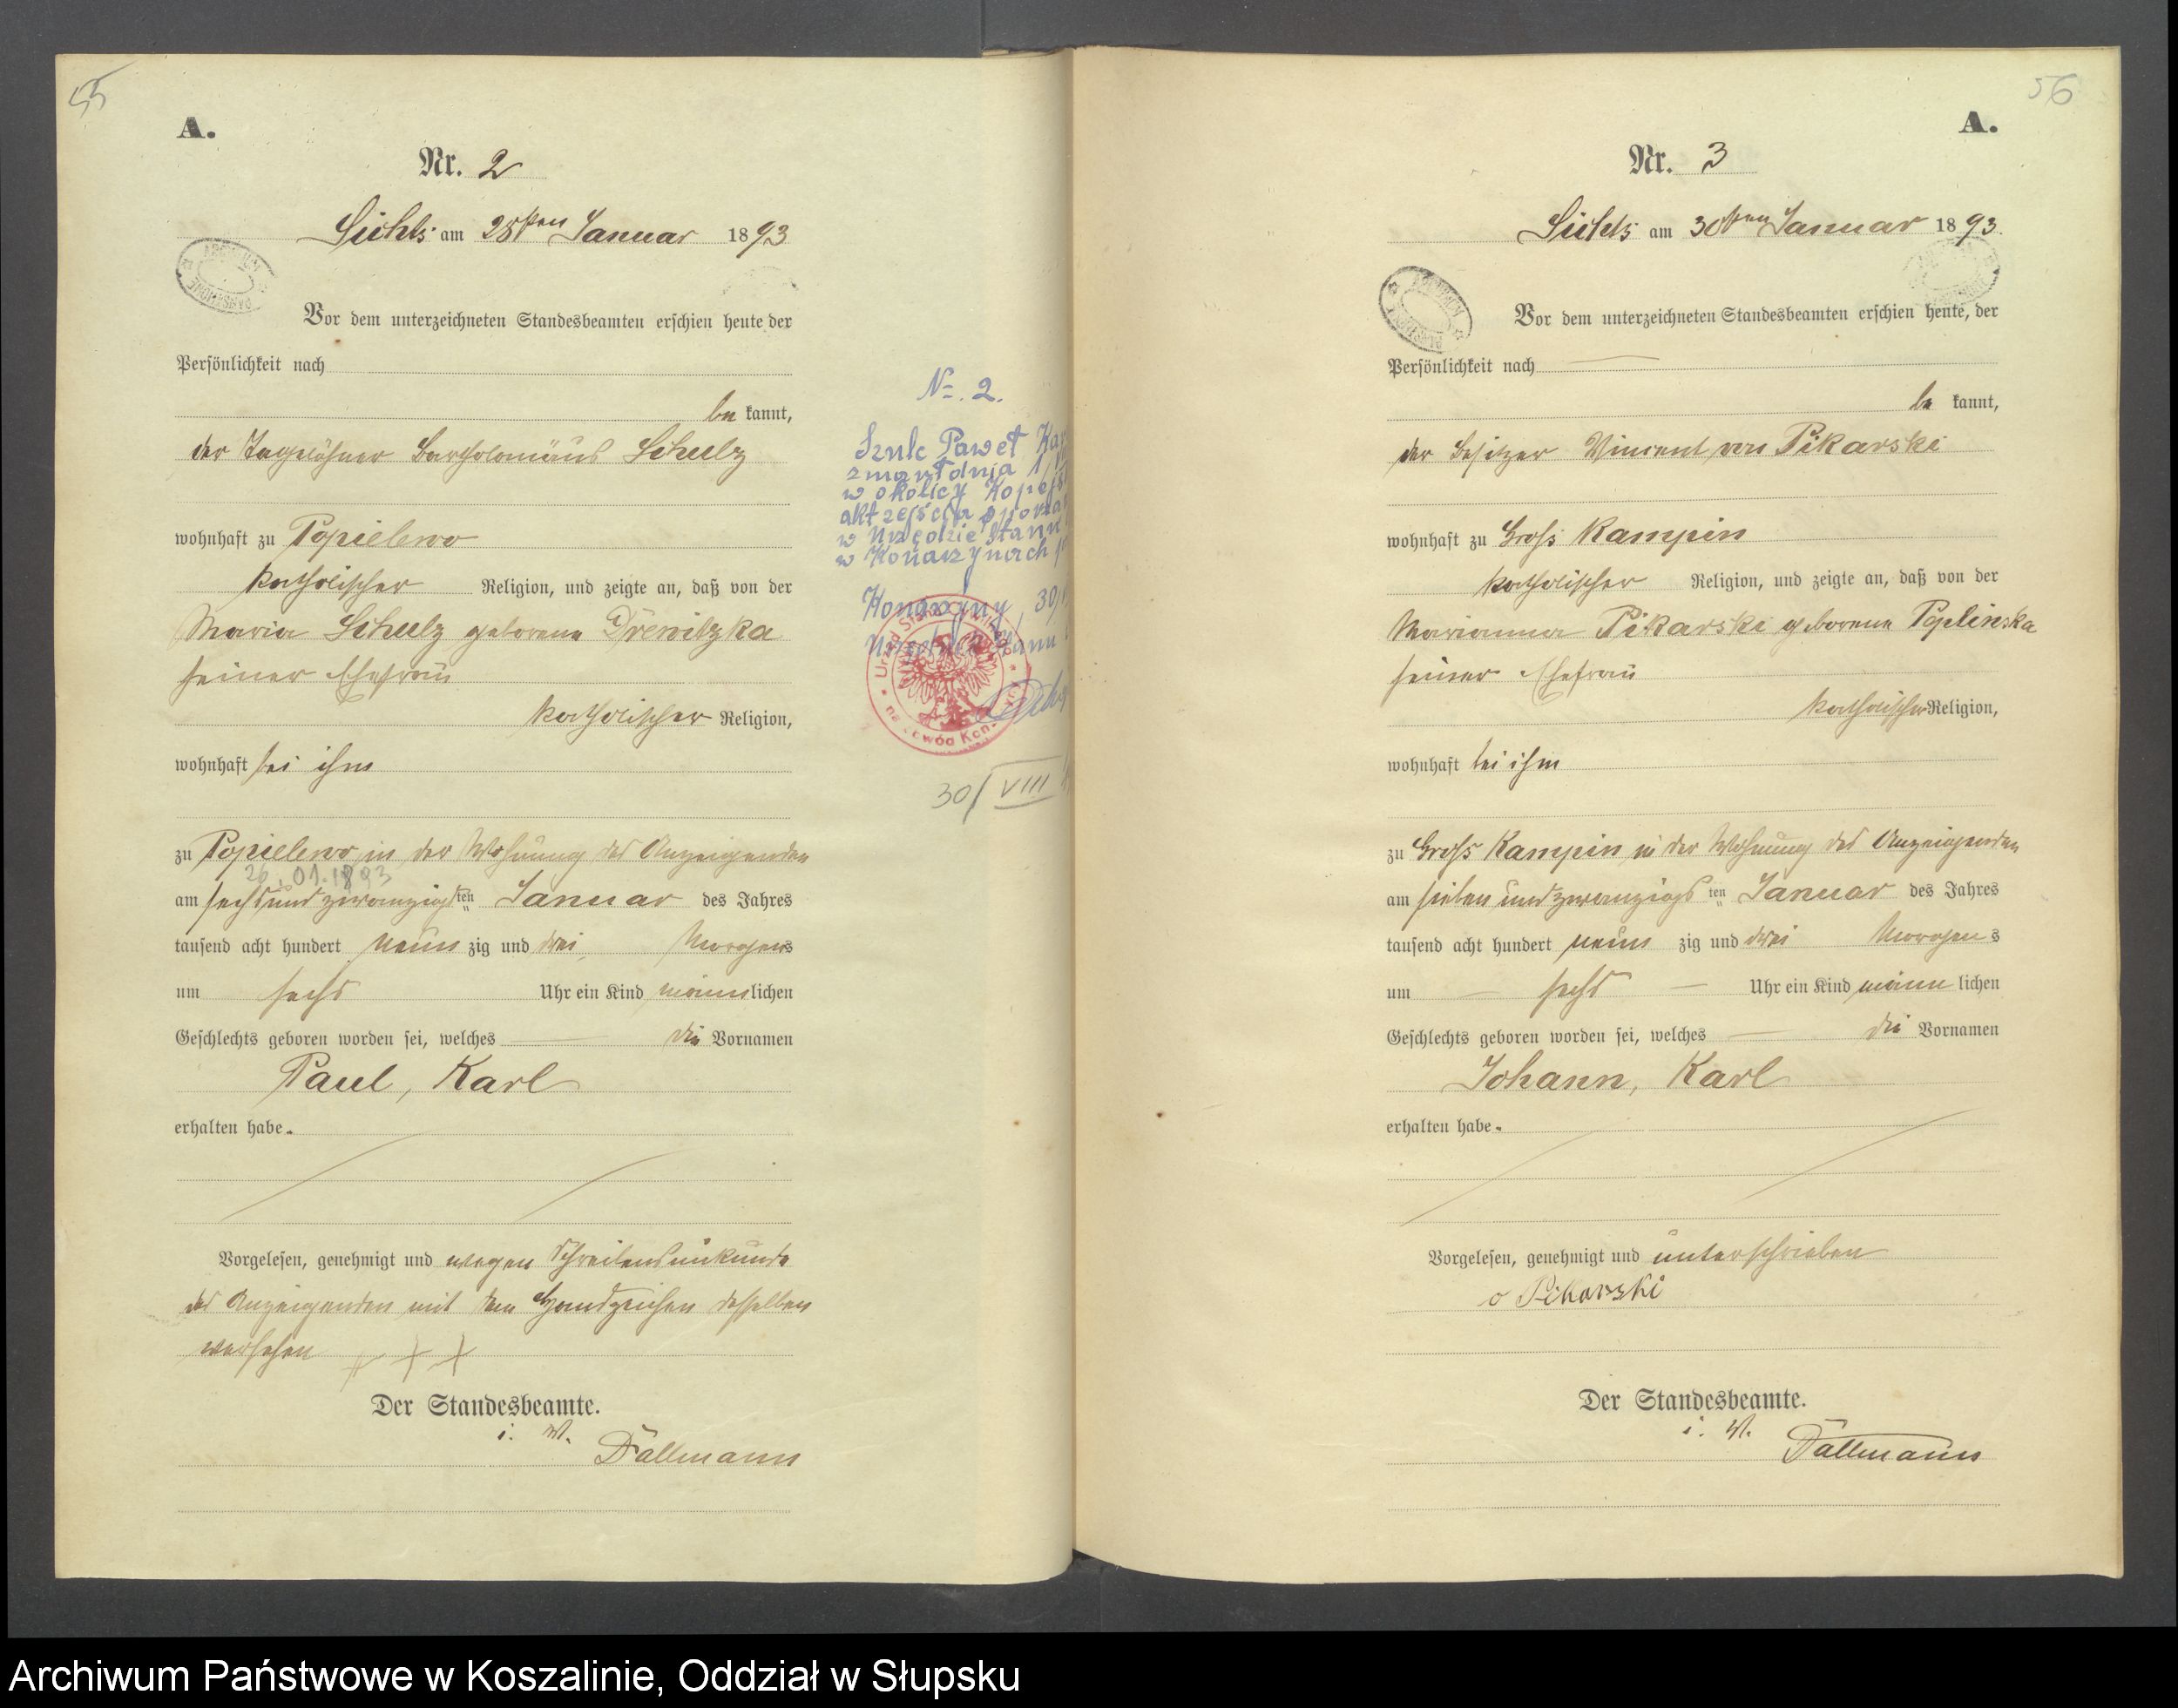 55
A.
Nr. 2
am 28ten Januar 1893
Vor dem unterzeichneten Standesbeamten erschien heute, der
Persönlichkeit nach
be kannt,
der Tagelöhner Bartholomäus Schulz
wohnhaft zu Popielewo
katholischer Religion, und zeigte an, daß von der
Maria Schulz geborene Drewitzka
seiner Ehefrau
katholischer Religion,
wohnhaft bei ihm
zu Popielewo in der Wohnung des Anzeigenden
26.01.1893
am sechsundzwanzigsten Januar des Jahres
tausend acht hundert neun zig und drei Morgens
um sechs Uhr ein Kind männlichen
Geschlechts geboren worden sei, welches die Vornamen
Paul, Karl
erhalten habe.
Vorgelesen, genehmigt und wegen Schreibensunkunde
des Anzeigenden mit dem Handzeichen desselben
versehen + + +
Der Standesbeamte.
i. V.
№. 2.
Szulc Paweł
zmarł dnia
w okolicy
akt zejścia
w Urzędzie Stanu
w Konarzynach
Konarzyny 30
30/VIII
56
A.
Nr. 3
am 30ten Januar 1893.
Vor dem unterzeichneten Standesbeamten erschien heute, der
Persönlichkeit nach
be kannt,
der Besitzer Vincent von Pikarski
wohnhaft zu Gross Kampin
katholischer Religion, und zeigte an, daß von der
Marianna Pikarski geborene Poplinska
seiner Ehefrau
katholischer Religion,
wohnhaft bei ihm
zu Gross Kampin in der Wohnung des Anzeigenden
am sieben und zwanzigsten Januar des Jahres
tausend acht hundert neun zig und drei Morgens
um sechs Uhr ein Kind männlichen
Geschlechts geboren worden sei, welches die Vornamen
Johann, Karl
erhalten habe.
Vorgelesen, genehmigt und unterschrieben
Pikarski
Der Standesbeamte.
i. V.
Archiwum Państwowe w Koszalinie, Oddział w Słupsku